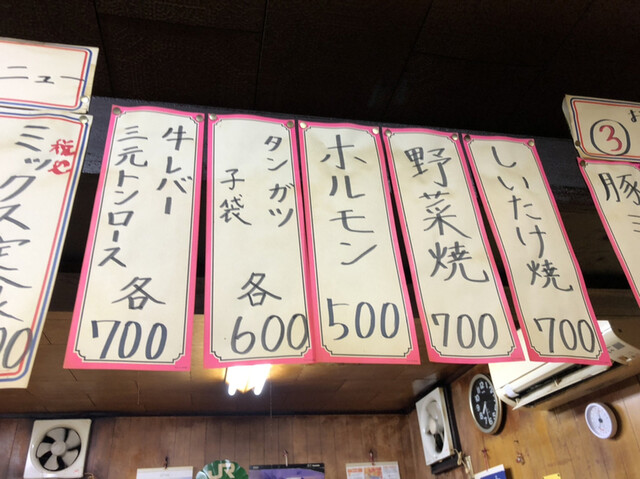 しいたけ焼
700
野菜焼
700
ホルモン
500
タンガツ
子袋
各
600
牛レバー
三元トンロース
各
700
ニュー
ミックス定
③
豚
JR